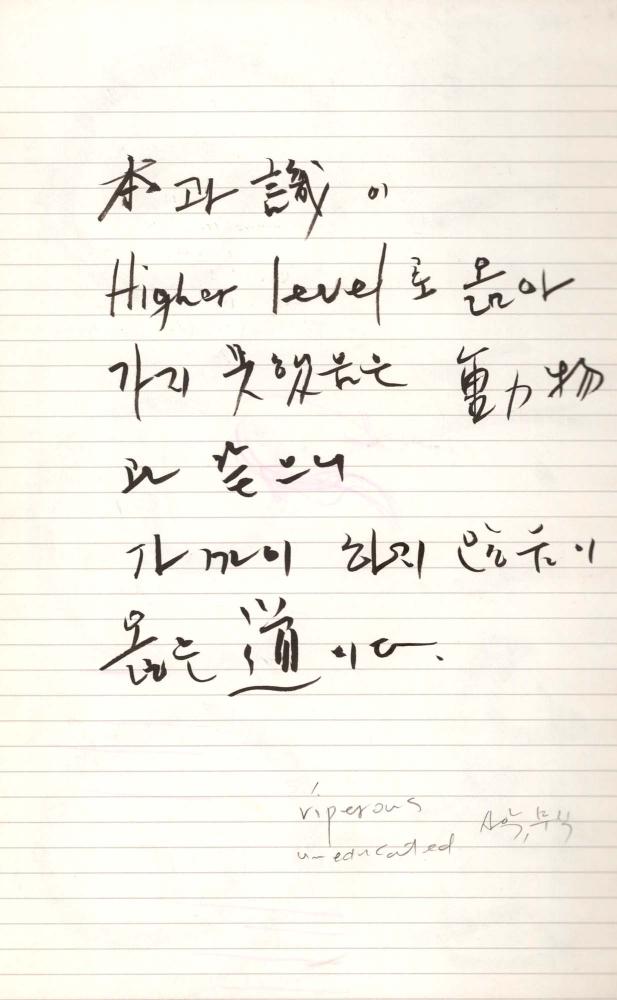 本과 識이
Higher level로 옮아
가지 못했음은 動物
과 같으니
가까이 하지 않음이
옳은 道이다.
viperous
uneducated